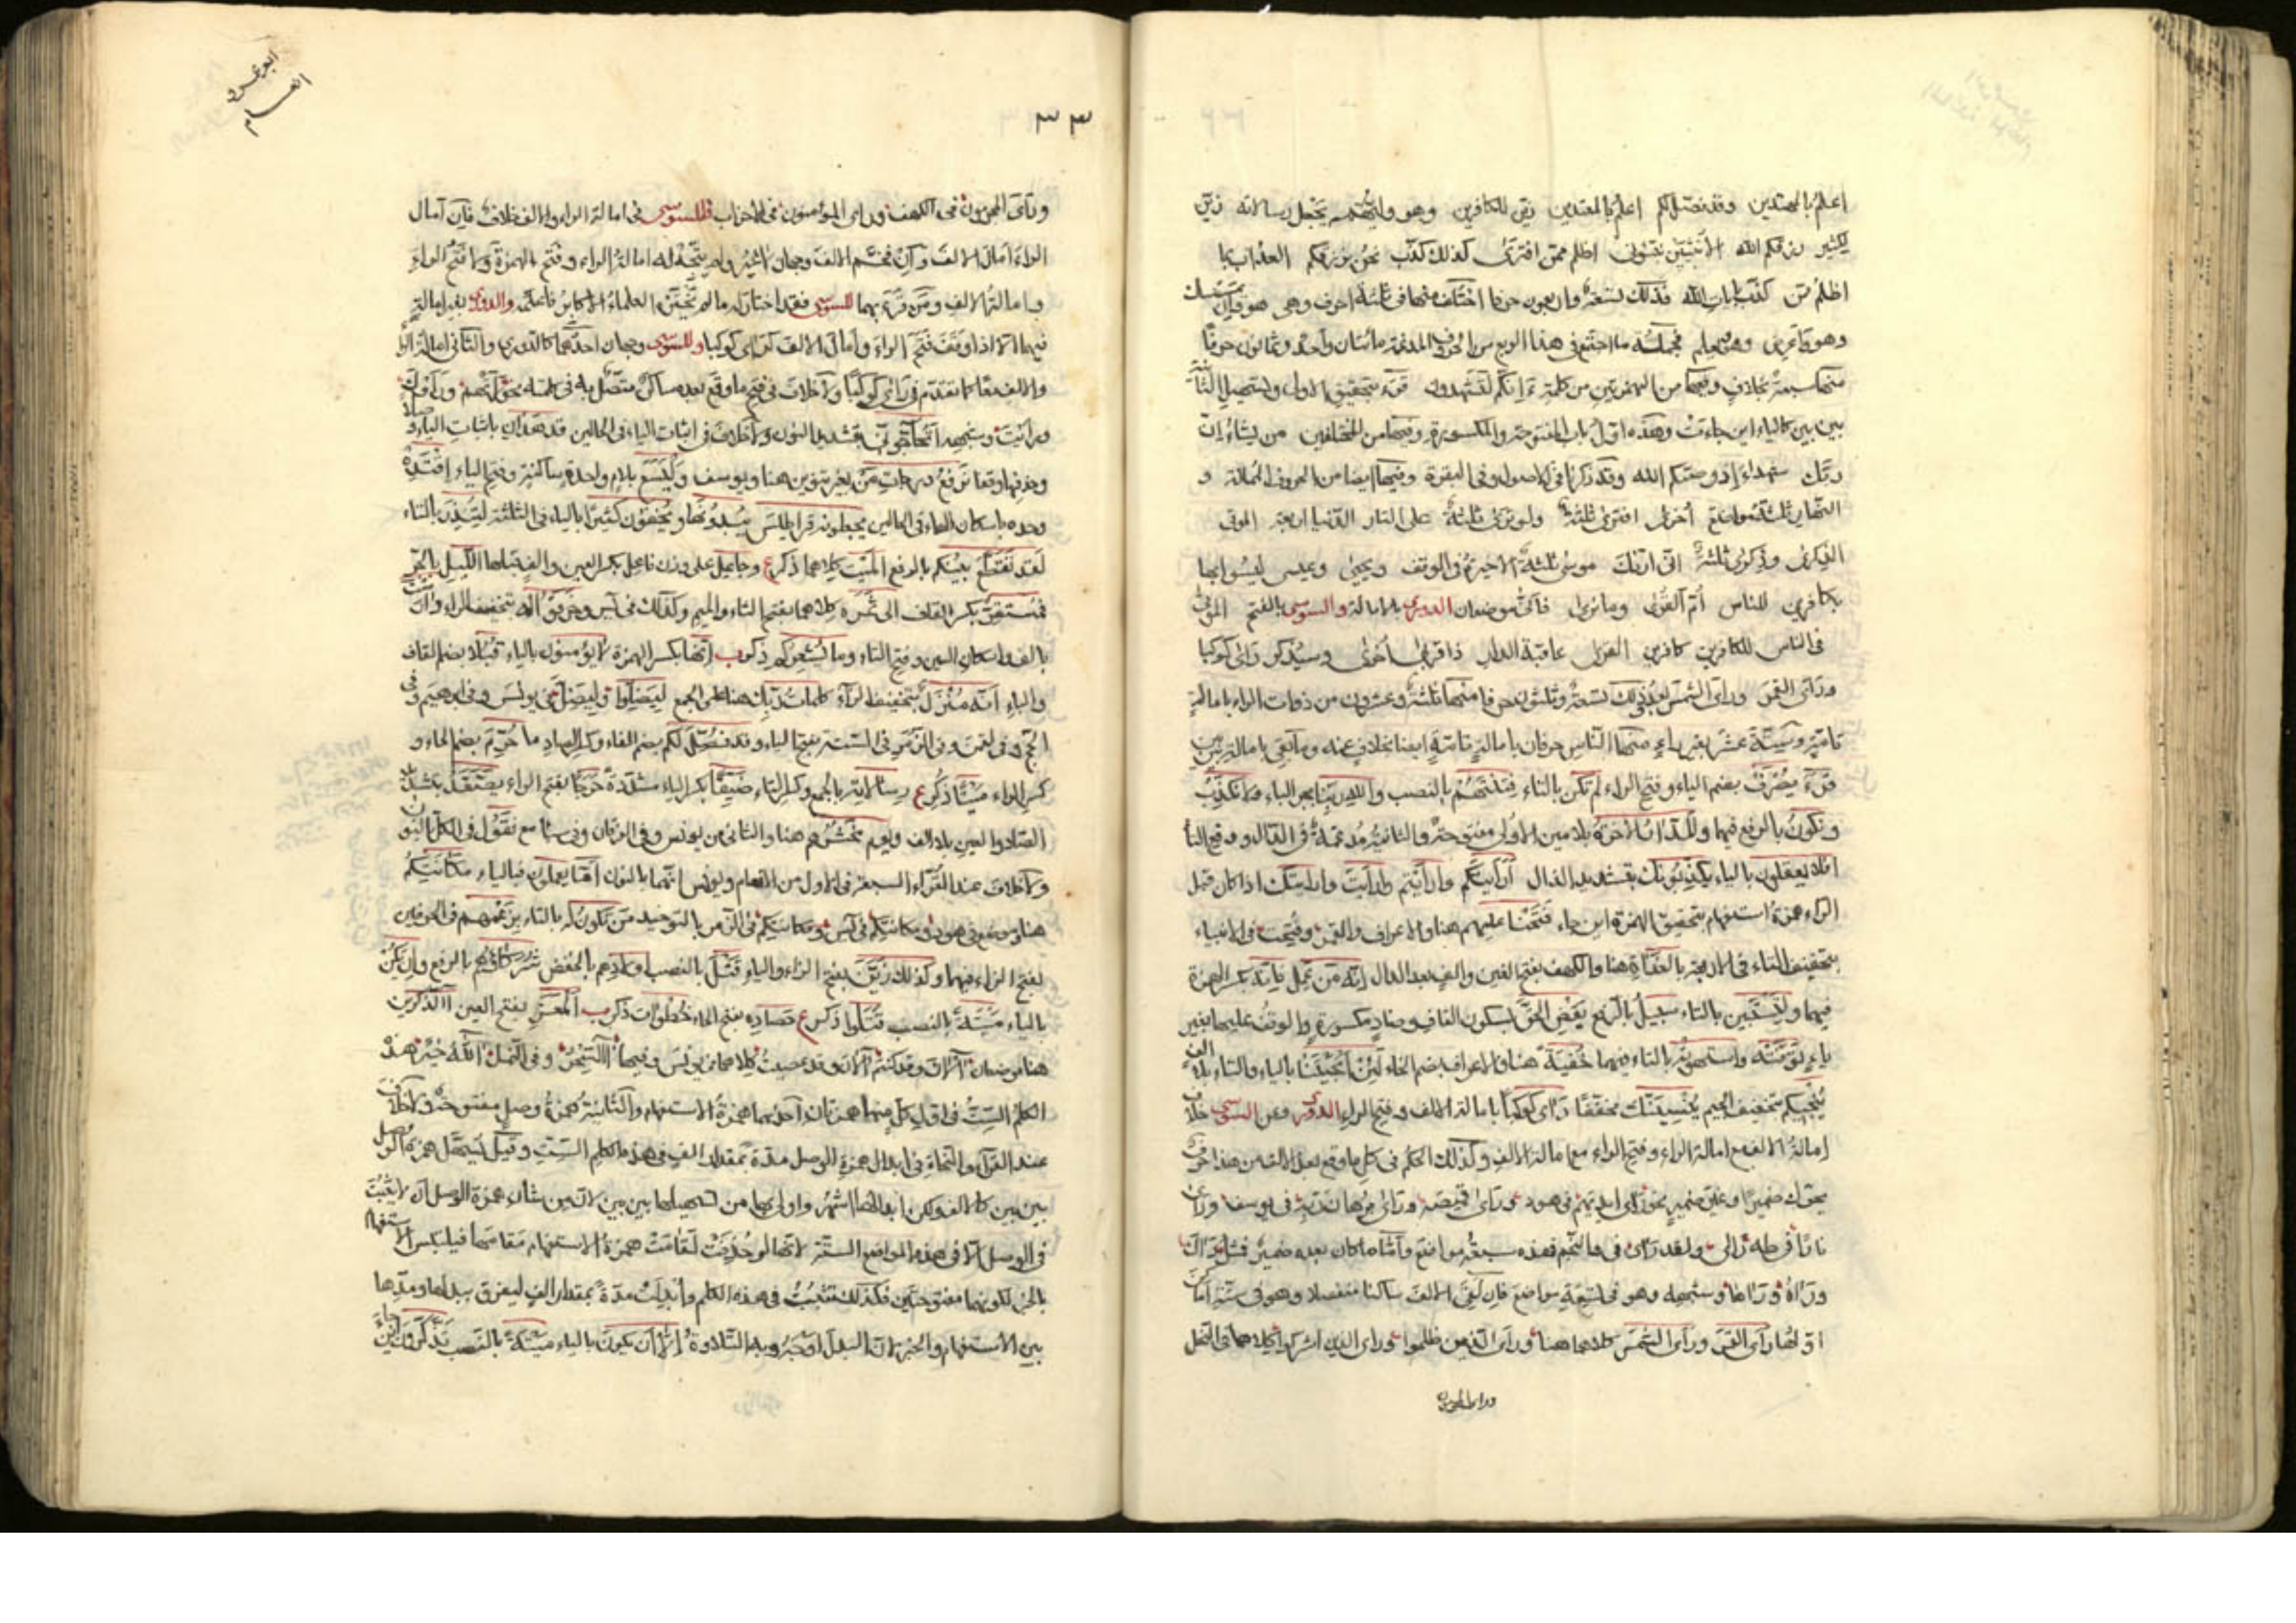 اعلم بالمهتدين وقد فصّل لكم اعلم بالمعتدين زين للكافرين وهو وليّهم يجعل رسالاته زيّن
لكثير رزقكم الله الأنثيين نبّئوني اظلم ممّن افترى كذلك كذّب نحن نرزقكم العذاب بما
اظلم ممّن كذّب بآيات الله فذلك تسعة واربعون حرفا اختلف منها في ثلثة احرف وهي هو وان يمسسك
وهو وأعرض وهو يعلم فجملة ما اجتمع في هذا الربع من الحروف المدغمة مأتان واحد وثمانون حرفًا
منها سبعة بخلاف وفيها من الهمزتين من كلمة ءَإنكم لتشهدون قرء بتحقيق الاولى وتسهيل الثانية
بين بين كالياء اين جاءت وهذه اوّل باب المفتوحة والمكسورة وفيها من المختلفين من يشاء إنّ
ربّك شهداء إذ وصّيكم الله وقد ذكرنا في الاصول وفي البقرة وفيها ايضا من الحروف الممالة و
النهار ثلثة مواضع أخرى افترى ثلثة ولو ترى ثلثة على النار الدنيا اربعة الموتى
الذكرى وذكرى ثلثة انّى اريك موسى ثلثة الاخيرة في الوقف ويحيى وعيسى ليسوا بها
بكافرين للناس أمّ القرى وما نرى فأنّى موضعان الدوري بالامالة والسوسي بالفتح الموتى
في الناس للكافرين كافرين القرى عاقبة الدار ذا قربى أخرى وسيذكر رأى كوكبا
ورأى القمر ورأى الشمس بعد ذلك تسعة وثلثون حرفا منها ثلثة وعشرون من ذوات الراء بامالة
تامّة وستّة عشر بغير راء منها النّاس حرفان بامالة تامّة ايضا بخلاف عنه وما بقي بامالة بين بين
قرء يصرف بضم الياء وفتح الراء لم تكن بالتاء فتنتهم بالنصب والله ربّنا بجر الباء ولا نكذّبُ
ونكونُ بالرفع فيهما وللدّار الآخرة بلامين الاولى مفتوحة والثانية مدغمة في الدال ورفع التاء
افلا يعقلون بالياء يكذّبونك بتشديد الذال أرأيتكم وارأيتم وارأيت وارايتك اذا كان قبل
الراء همزة استفهام بتحقيق الهمزة اين جاء فتحنا عليهم هنا والاعراف والقمر وفتحت في الانبياء
بتخفيف التاء في الاربعة بالغداة هنا والكهف بفتح الغين والف بعد الدال إنّه من عمل فإنّه بكسر الهمزة
فيهما ولتستبين بالتاء سبيلُ بالرفع يقض الحقّ بسكون القاف وضاد مكسورة والوقف عليها بغير
ياء توفّته واستهوته بالتاء فيهما خُفيةً هنا والاعراف بضم الخاء لئن أنجيتنا بالياء والتاء بلا الف
يُنجيكم بتخفيف الجيم يُنسينّك مخففًا رأى كوكبًا بامالة الالف وفتح الراء الدوري وعن السوسي خلاف
إمالة الالف مع امالة الراء وفتح الراء مع امالة الالف وكذلك الحكم في كل ما وقع بعد الالف من هذا حرف
متحرك ضميرًا وغير ضمير نحو رأى ايديهم في هود ورأى قميصه ورأى برهان ربّه في يوسف ورأى
نارًا في طه رأى ولقد رأى في والنجم فهذه سبعة مواضع وأمّا ما كان بعده ضمير فمثل رآك
ورآه ورآها وشبهه وهو في تسعة مواضع فان لقي الالف ساكنا منفصلا وهو في ستة اماكن
اوّلها رأى القمر ورأى الشمس كلاهما هنا ورأى الذين ظلموا ورأى الذين اشركوا كلاهما في النحل
ورأى المجرمون
ابو عمرو
انعام
٣٣
ورأى المجرمون في الكهف ورأى المؤمنون في الاحزاب فللسوسي في امالة الراء والالف خلاف فان امال
الراء أمال الالف وان فخّم الالف وجهان لا غير ولم يتّجه له امالة الراء وفتح الهمزة ولا فتح الراء
وامالة الالف ومن قرء بهما للسوسي فقد اختار له ما لم يختره العلماء الاكابر فاعلمه والدوري بغير امالة
فيهما الّا اذا وقف فتح الراء وأمال الالف كرأى كوكبا وللسوسي وجهان احدهما كالدوري والثاني امالة الراء
والالف معًا كما تقدّم في رأى كوكبًا ولا خلاف في فتح ما وقع بعده ساكن متّصل به في كلمته نحو رأتهم ورأوك
ورأيت وشبهه أتحاجّونّي بتشديد النون ولا خلاف في اثبات الياء في الحالين قد هدان باثبات الياء وصلا
وحذفها وقفا نرفع درجاتِ مَن بغير تنوين هنا ويوسف واليسع بلام واحدة ساكنة وفتح الياء اقتده
وحده باسكان الهاء في الحالين يجعلونه قراطيس يبدونها ويخفون كثيرا بالياء في الثلثة لتنذر بالتاء
لقد تقطّع بينُكم بالرفع الميّت كلاهما ذكر ع وجاعل على وزن فاعل بكسر العين والف قبلها الليل بالجرّ
فمستقِرّ بكسر القاف الى ثَمَره كلاهما بفتح الثاء والميم وكذلك في يس وخرقوا له بتخفيف الراء دارست
بالف واسكان السين وفتح التاء وما يُشعركم ذكر ب إنّها بكسر الهمزة لا يؤمنون بالياء قُبُلا بضم القاف
والباء انّه مُنزل بتخفيف الزاء كلمات ربّك هنا على الجمع ليَضلّوا وليَضلّ في يونس وفي ابرهيم وفي
الحجّ وفي لقمن وفي الزمر في الستة بفتح الياء وقد فُصّل لكم بضم الفاء وكسر الصاد ما حُرّم بضم الحاء و
كسر الراء ميتًا ذكر ع رسالاته بالجمع وكسر التاء ضيّقًا بكسر الياء مشدّدة حَرَجًا بفتح الراء يصّعّد بتشديد
الصاد والعين بلا الف ويوم نحشرهم هنا والثاني من يونس وفي الفرقان وفي سبأ مع نقول في الكل بالنون
ولا خلاف عند القرّاء السبعة في الاول من الانعام ويونس انهما بالنون عمّا يعملون بالياء مكانتكم
هنا وموضعي هود ومكانتكم في يس ومكانتكم في الزمر بالتوحيد مَن تكون له بالتاء بزَعمهم في الحرفين
بفتح الزاء فيهما وكذلك زَيّن بفتح الزاء والياء قتلَ بالنصب اولادِهم بالخفض شركاؤُهم بالرفع وان يكن
بالياء ميتةً بالنصب قتلوا ذكر ع حصاده بفتح الحاء خطوات ذكر ب المعَز بفتح العين آلذكرين
هنا موضعان آلآن وقد كنتم آلآن وقد عصيت كلاهما في يونس وفيها آللّه أذن وفي النمل آللّه خيرٌ فهذه
الكلم الستّ في اوّل كلّ منها همزتان احدهما همزة الاستفهام والثانية همزة وصل مفتوحة ولا خلاف
عند القرّاء والنحاة في ابدال همزة الوصل مدّة بمقدار الف في هذه الكلم الستّ وقيل تسهّل همزة الوصل
بين بين كالالف ولكن ابدالها اشهر واولى بها من تسهيلها بين بين لانّ من شأن همزة الوصل ان لا يثبت
في الوصل الّا في هذه المواضع الستّة لانّها لو حُذفت لقامت همزة الاستفهام مقامها فيلبس الاستفهام
بالخبر لكونهما مفتوحتين فكذلك تثبت في هذه الكلم وأبدلت مدّة بمقدار الف ليفرق ببدلها ومدّها
بين الاستفهام والخبر لانّ البدل اوجه وبه التلاوة إلّا أن يكون بالياء ميتةً بالنصب تذّكّرون اين جاء